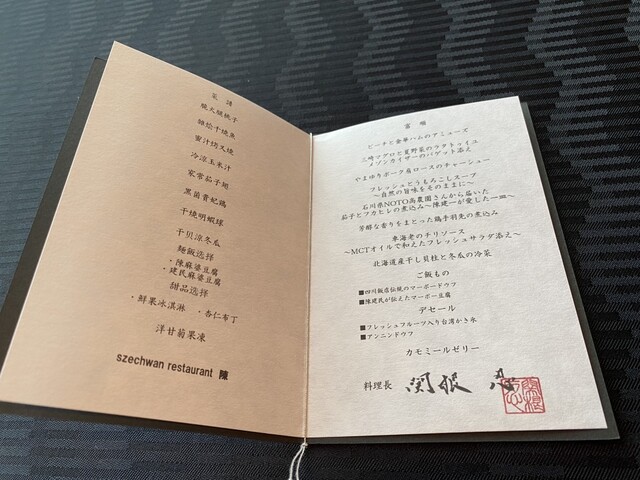 脆火腿桃子
蜜汁叉焼
冷涼玉米汁
家常茄子翅
黒菌貴妃鶏
干焼明蝦球
干贝涼冬瓜
麺飯选择
・陳麻婆豆腐
・建民麻婆豆腐
甜品选择
・鮮果冰淇淋 ・杏仁布丁
洋甘菊果凍
szechwan restaurant 陳
ピーチと金華ハムのアミューズ
三崎マグロと夏野菜のラタトゥイユ
メゾンカイザーのバゲット添え
やまゆりポーク肩ロースのチャーシュー
フレッシュとうもろこしスープ
～自然の旨味をそのままに～
石川県NOTO高農園さんから届いた
茄子とフカヒレの煮込み～陳建一が愛した一皿～
芳醇な香りをまとった鶏手羽先の煮込み
車海老のチリソース
～MCTオイルで和えたフレッシュサラダ添え～
北海道産干し貝柱と冬瓜の冷菜
ご飯もの
■四川飯店伝統のマーボードウフ
■陳建民が伝えたマーボー豆腐
デセール
■フレッシュフルーツ入り台湾かき氷
■アンニンドウフ
カモミールゼリー
料理長 関根